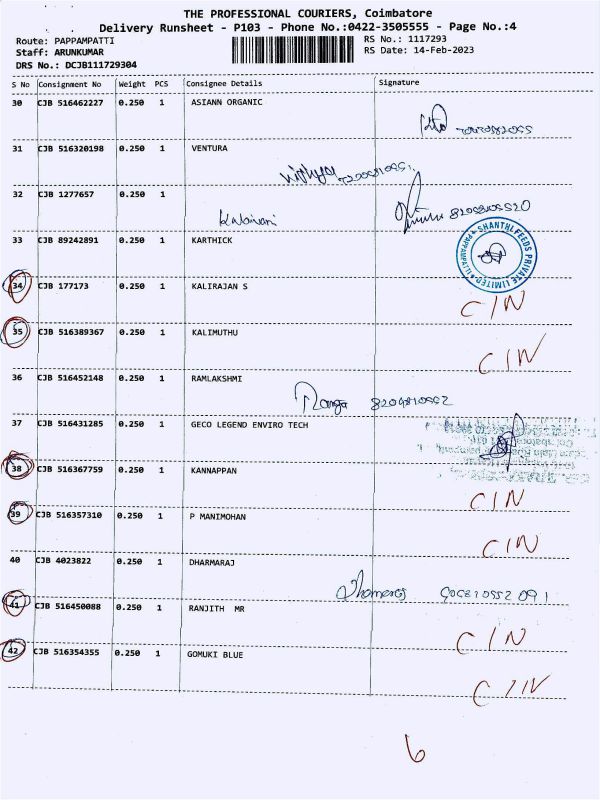 THE PROFESSIONAL COURIERS, Coimbatore
Delivery Runsheet - P103 - Phone No.:0422-3505555 - Page No.:4
Route: PAPPAMPATTI RS No.: 1117293
Staff: ARUNKUMAR RS Date: 14-Feb-2023
DRS No.: DCJB111729304
S No Consignment No Weight PCS Consignee Details Signature
30 CJB 516462227 0.250 1 ASIANN ORGANIC
31 CJB 516320198 0.250 1 VENTURA
32 CJB 1277657 0.250 1
33 CJB 89242891 0.250 1 KARTHICK
SHANTHI FEEDS PRIVATE LIMITED
34 CJB 177173 0.250 1 KALIRAJAN S
C/N
35 CJB 516389367 0.250 1 KALIMUTHU
C/N
36 CJB 516452148 0.250 1 RAMLAKSHMI
Ranga
37 CJB 516431285 0.250 1 GECO LEGEND ENVIRO TECH
38 CJB 516367759 0.250 1 KANNAPPAN
C/N
39 CJB 516357310 0.250 1 P MANIMOHAN
C/N
40 CJB 4023822 0.250 1 DHARMARAJ
41 CJB 516450088 0.250 1 RANJITH MR
C/N
42 CJB 516354355 0.250 1 GOMUKI BLUE
C/N
6